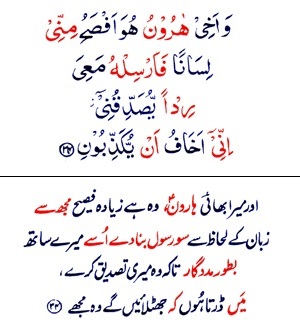 وَاَخِیْ هٰرُوْنُ هُوَ اَفْصَحُ مِنِّیْ
لِسَانًا فَاَرْسِلْهُ مَعِیَ
رِدْاً یُّصَدِّقُنِیْۤ ۫
اِنِّیْۤ اَخَافُ اَنْ یُّكَذِّبُوْنِ ﴿۳۴﴾
اور میرا بھائی ہارونؑ وہ ہے زیادہ فصیح مجھ سے
زبان کے لحاظ سے سو رسول بنا دے اُسے میرے ساتھ
بطور مددگار تاکہ وہ میری تصدیق کرے ،
میں ڈرتا ہُوں کہ جھٹلائیں گے وہ مجھے ﴿۳۴﴾